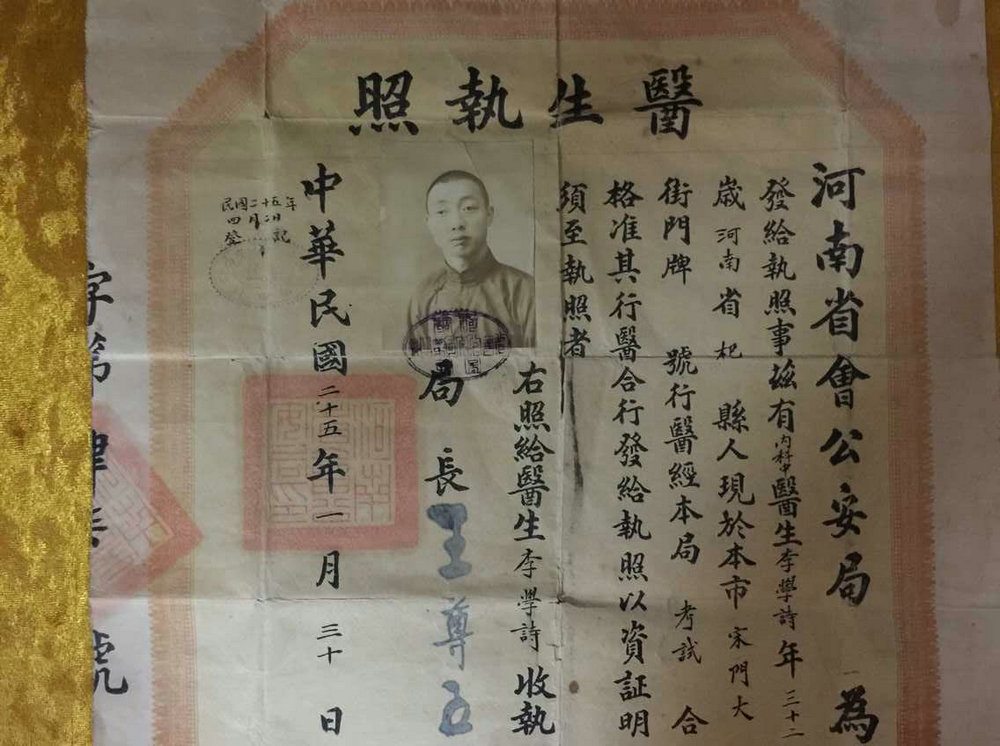 醫生執照
河南省會公安局 為
發給執照事茲有內科中醫生李學詩年三十二
歲河南省杞縣人現於本市宋門大
街門牌 號行醫經本局考試合
格准其行醫合行發給執照以資証明
須至執照者
右照給醫生李學詩收執
局長王尊五
中華民國二十五年一月三十日
民國二十五年
四月二日
登記
字第 號